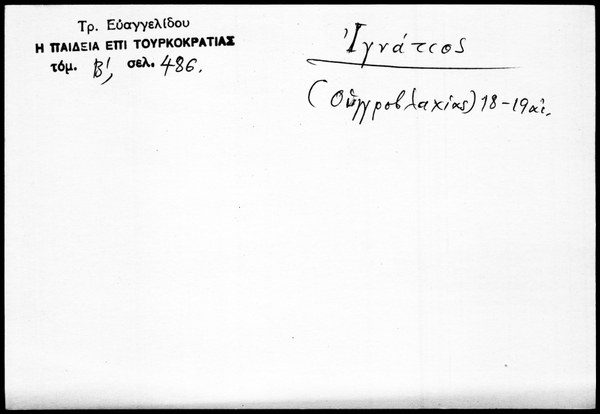 Τρ. Εὐαγγελίδου
Η ΠΑΙΔΕΙΑ ΕΠΙ ΤΟΥΡΚΟΚΡΑΤΙΑΣ
τόμ. Β', σελ. 486.
Ἰγνάτιος
(Οὑγγροβλαχίας) 18-19 αἰ.